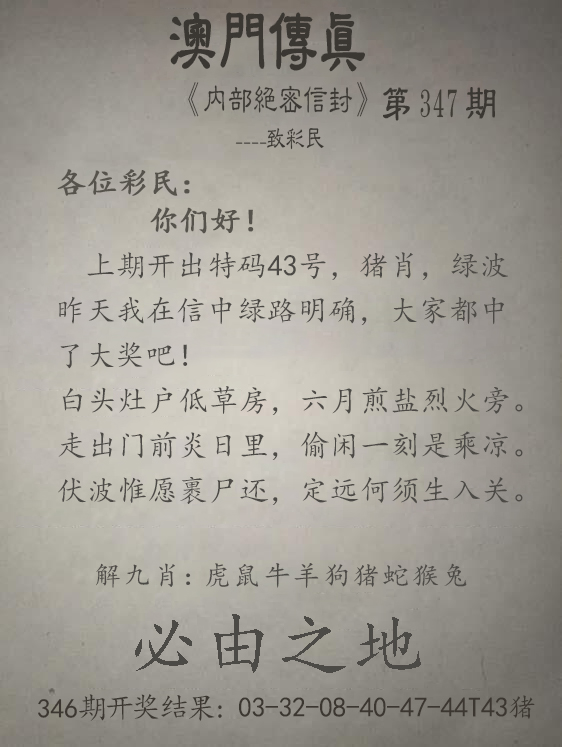 澳門傳眞
《内部絕密信封》第347期
----致彩民
各位彩民：
你们好！
上期开出特码43号，猪肖，绿波
昨天我在信中绿路明确，大家都中
了大奖吧！
白头灶户低草房，六月煎盐烈火旁。
走出门前炎日里，偷闲一刻是乘凉。
伏波惟愿裹尸还，定远何须生入关。
解九肖：虎鼠牛羊狗猪蛇猴兔
必由之地
346期开奖结果：03-32-08-40-47-44T43猪